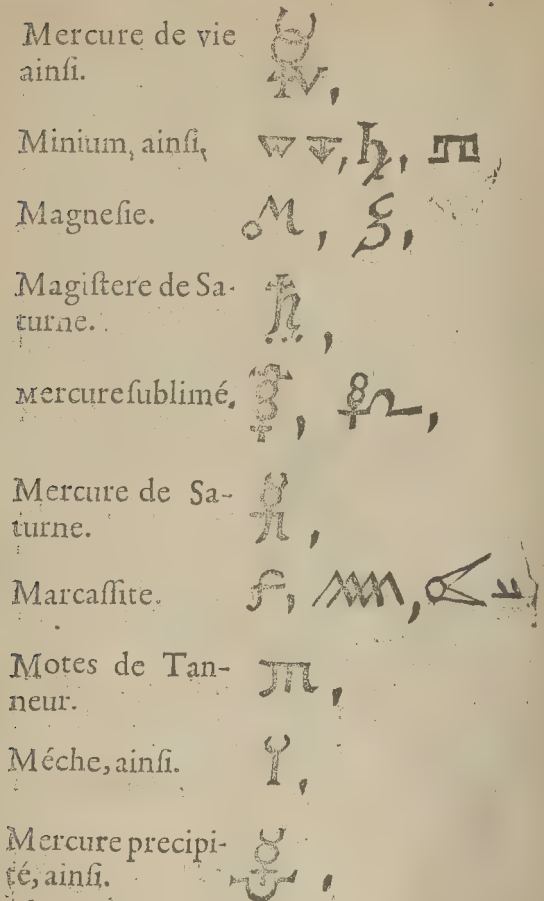 Mercure de vie
ainſi.
Minium, ainſi,
Magneſie.
Magiſtere de Sa-
turne.
Mercure ſublimé,
Mercure de Sa-
turne.
Marcaſſite.
Motes de Tan-
neur.
Méche, ainſi.
Mercure precipi-
té, ainſi.